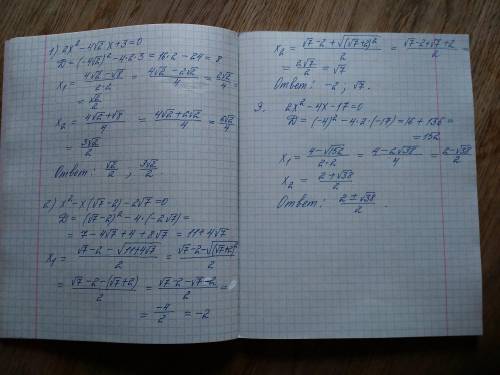 1) 2x² - 4√2 x + 3 = 0
D = (-4√2)² - 4·2·3 = 16·2 - 24 = 8
x₁ = (4√2 - √8)/(2·2) = (4√2 - 2√2)/4 = 2√2/4 =
= √2/2
x₂ = (4√2 + √8)/4 = (4√2 + 2√2)/4 = 6√2/4 =
= 3√2/2
Ответ: √2/2 , 3√2/2
2) x² - x(√7 - 2) - 2√7 = 0
D = (√7 - 2)² - 4·(-2√7) =
= 7 - 4√7 + 4 + 8√7 = 11 + 4√7
x₁ = (√7 - 2 - √(11+4√7))/2 = (√7 - 2 - √((√7+2)²))/2
= (√7 - 2 - (√7+2))/2 = (√7 - 2 - √7 - 2)/2 =
= -4/2 = -2
x₂ = (√7 - 2 + √((√7+2)²))/2 = (√7 - 2 + √7 + 2)/2
= 2√7/2 = √7
Ответ: -2 ; √7.
9. 2x² - 4x - 17 = 0
D = (-4)² - 4·2·(-17) = 16 + 136 =
= 152
x₁ = (4 - √152)/(2·2) = (4 - 2√38)/4 = (2 - √38)/2
x₂ = (2 + √38)/2
Ответ: (2 ± √38)/2 .